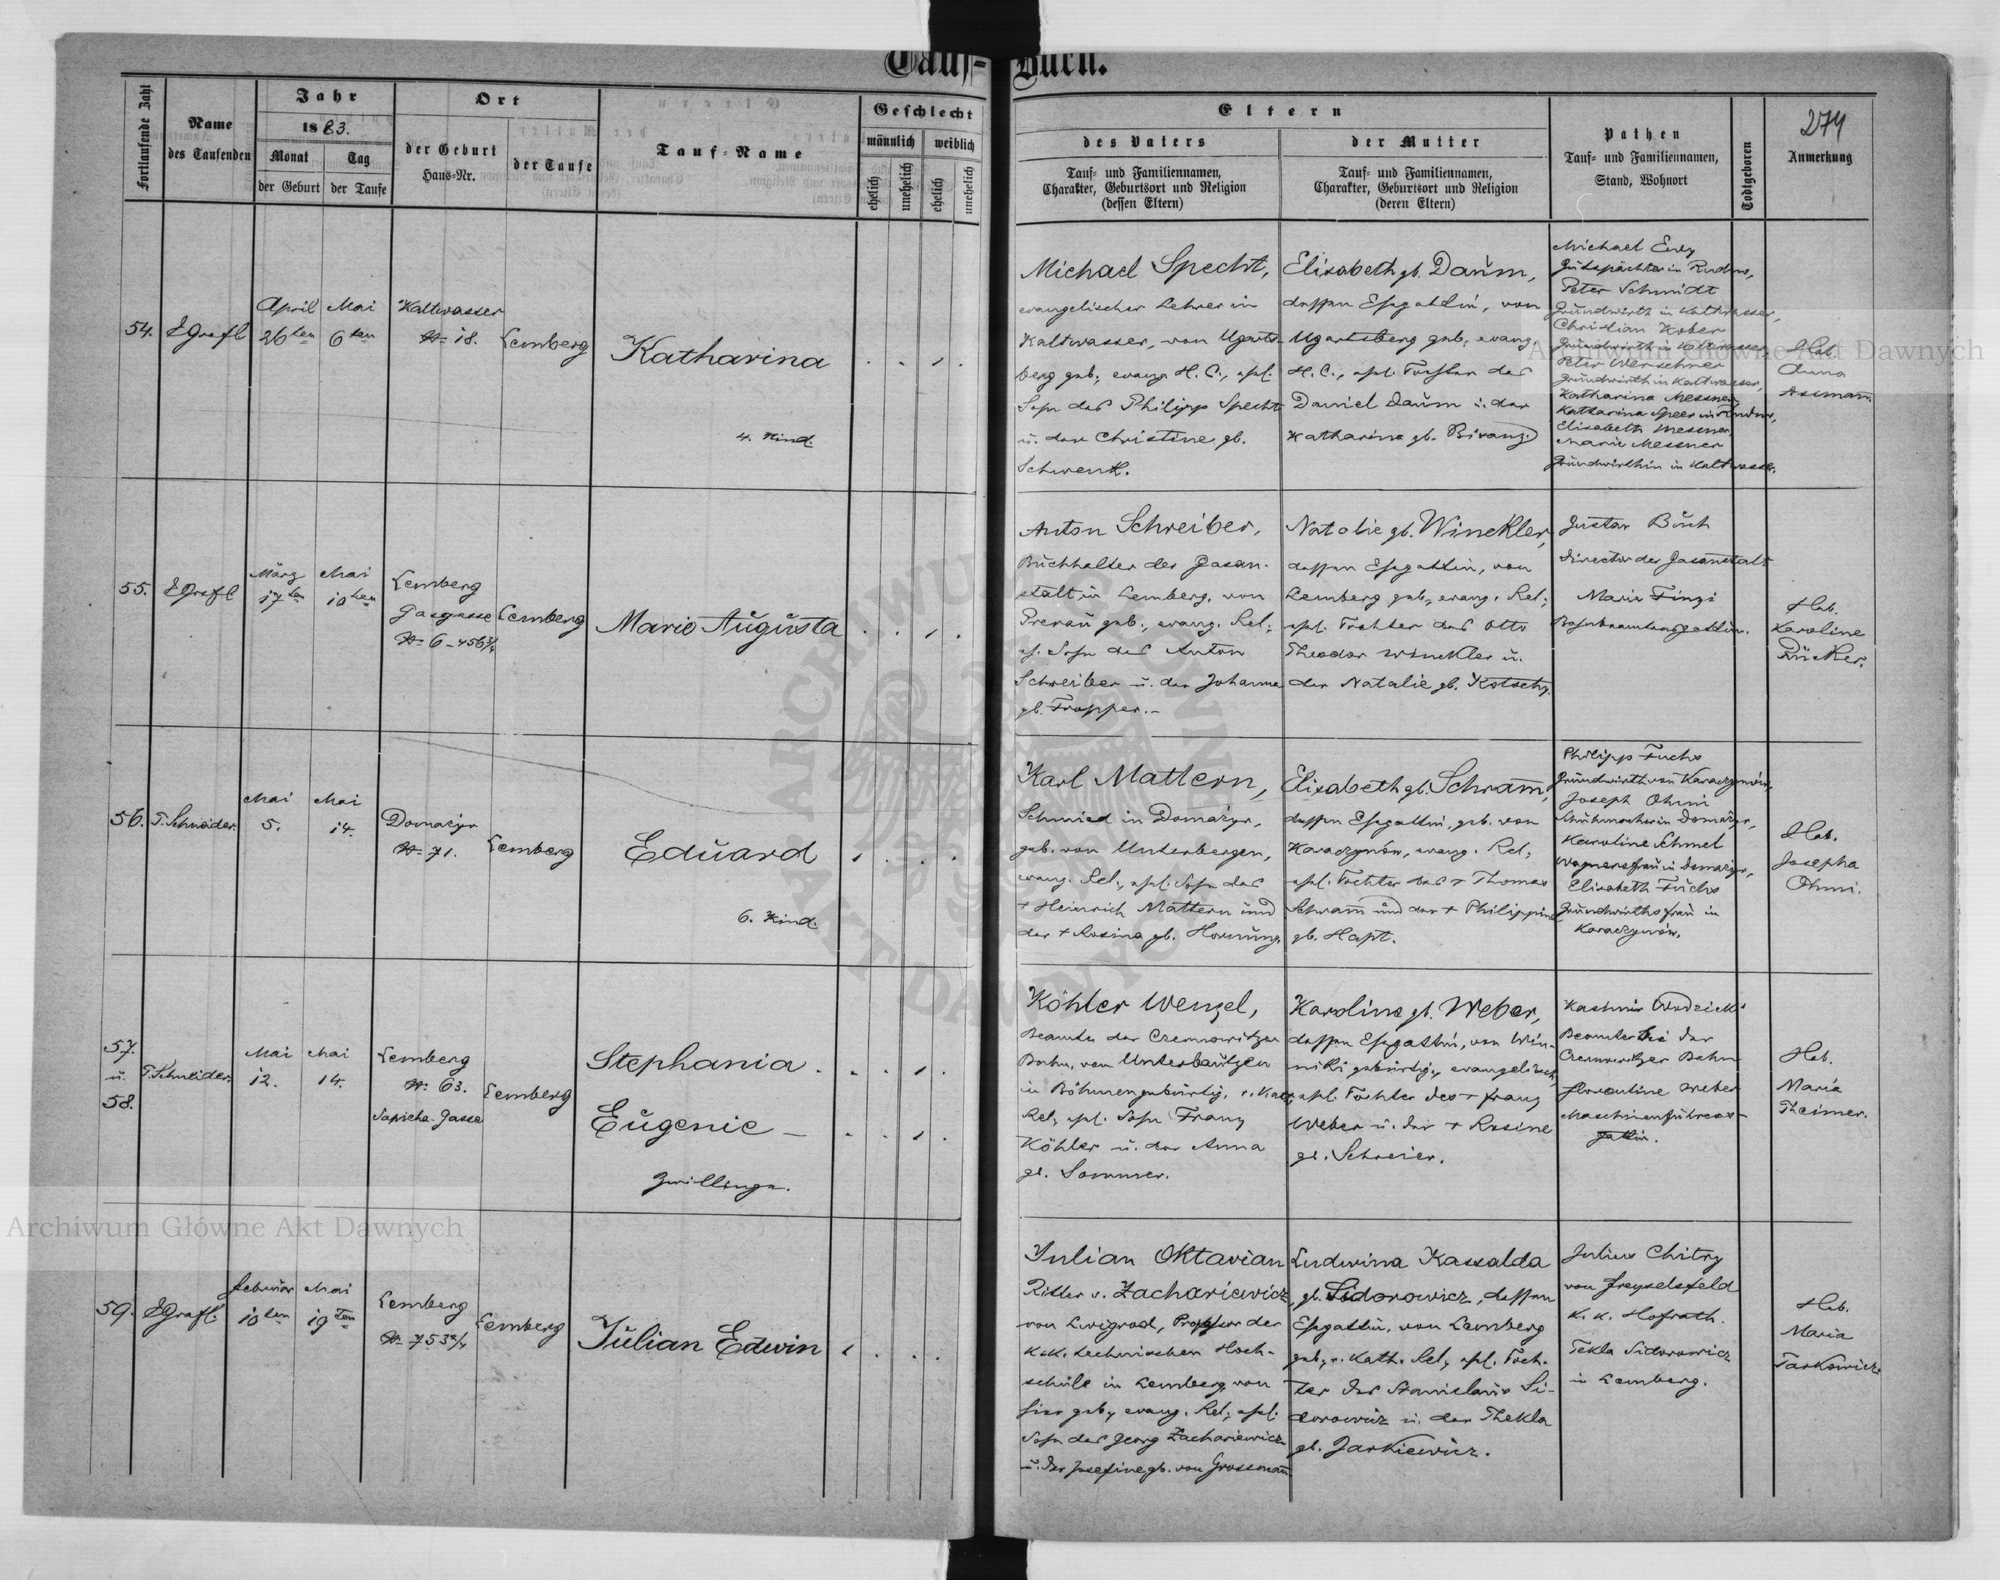 Tauf-Buch.
Fortlaufende Zahl
Name
des Taufenden
Jahr
1883.
Monat
der Geburt
Tag
der Taufe
Ort
der Geburt
Haus-Nr.
der Taufe
Tauf-Name
Geschlecht
männlich
weiblich
ehelich
unehelich
ehelich
unehelich
Eltern
des Vaters
Tauf- und Familiennamen,
Charakter, Geburtsort und Religion
(dessen Eltern)
der Mutter
Tauf- und Familiennamen,
Charakter, Geburtsort und Religion
(deren Eltern)
Pathen
Tauf- und Familiennamen,
Stand, Wohnort
Todtgeboren
274
Anmerkung
54.
April
26ten
Mai
6ten
Kaltwasser
N. 18.
Lemberg
Katharina
4. Kind.
Michael Specht,
evangelischer Lehrer in
Kaltwasser, von Ugarts-
berg geb., evang. H. C., ehel.
Sohn des Philipp Specht
u. der Christine gb.
Schwenk.
Elisabeth gb. Daum,
dessen Ehegattin, von
Ugartsberg geb., evang.
H. C., ehel. Tochter des
Daniel Daum u. der
Katharina gb. Bisanz.
Michael
Gutspächter in
Peter Schmidt
Grundwirth in Kaltwasser,
Christian Kober
Grundwirth in Kaltwasser,
Peter Werschner
Grundwirth in Kaltwasser,
Katharina Messner,
Katharina Speer in
Elisabeth Messner,
Marie Messner
Grundwirthin in Kaltwasser.
Heb.
Anna
Assmann
55.
März
17ten
Mai
10ten
Lemberg
Gasgasse
N. 6 - 456 3/4
Lemberg
Marie Augusta
Anton Schreiber,
Buchhalter der Gasan-
stalt in Lemberg, von
Prerau geb., evang. Rel.,
eh. Sohn des Anton
Schreiber u. der Johanna
gb. Tropper.-
Natalie gb. Winckler,
dessen Ehegattin, von
Lemberg geb., evang. Rel.,
ehel. Tochter des Otto
Theodor Winckler u.
der Natalie gb. Kotschy.
Gustav Buch
Director der Gasanstalt
Marie Finzi
Bahnbeamtensgattin.
Heb.
Karoline
Rücker.
56.
T. Schneider.
Mai
5.
Mai
14.
Domażyr
N. 71.
Lemberg
Eduard
6. Kind.
Karl Mattern,
Schmied in Domażyr,
geb. von Unterbergen,
evang. Rel., ehel. Sohn des
+ Heinrich Mattern und
der + Rosina gb. Hornung.
Elisabeth gb. Schram,
dessen Ehegattin, geb. von
Karaczynów, evang. Rel.,
ehel. Tochter des + Thomas
Schram und der + Philippine
gb. Hapt.
Philipp Fuchs
Grundwirth von Karaczynów,
Joseph Ohmi
Schuhmacher in Domażyr,
Karoline Schmel
Wagnersfrau in Domażyr,
Elisabeth Fuchs
Grundwirthsfrau in
Karaczynów.
Heb.
Josepha
Ohmi.
57.
u.
58.
T. Schneider.
Mai
12.
Mai
14.
Lemberg
N. 63.
Sapieha-Gasse
Lemberg
Stephania
Eugenie
Zwillinge.
Köhler Wenzel,
Beamte der Czernowitzer
Bahn, von Unterbautzen
in Böhmen gebürtig, r. Kath.
Rel., ehel. Sohn Franz
Köhler u. der Anna
gb. Sommer.
Karoline gb. Weber,
dessen Ehegattin, von Win-
niki gebürtig, evangelisch,
ehel. Tochter des + Franz
Weber u. der + Rosine
gb. Schreier.
Kasimir Wodzicki
Beamter bei der
Czernowitzer Bahn
Florentine Weber
Maschinenführers-
gattin.
Heb.
Maria
Theimer.
59.
Februar
10ten
Mai
19ten
Lemberg
N. 753 2/4
Lemberg
Julian Edwin
Julian Oktavian
Ritter v. Zachariewicz
von Lwigrod, Professor der
k.k. technischen Hoch-
schule in Lemberg, von
hier geb., evang. Rel., ehel.
Sohn des Georg Zachariewicz
u. der Josefine gb. von Grossmann
Ludwina Kassalda
gb. Sidorowicz, dessen
Ehegattin, von Lemberg
geb., r. Kath. Rel., ehel. Toch-
ter des Stanislaus Si-
dorowicz u. der Thekla
gb. Jarkiewicz.
Julius Chitry
von Freyselsfeld
k. k. Hofrath.
Tekla Sidorowicz
in Lemberg.
Heb.
Maria
Tarkowicz
Archiwum Główne Akt Dawnych
Archiwum Główne Akt Dawnych